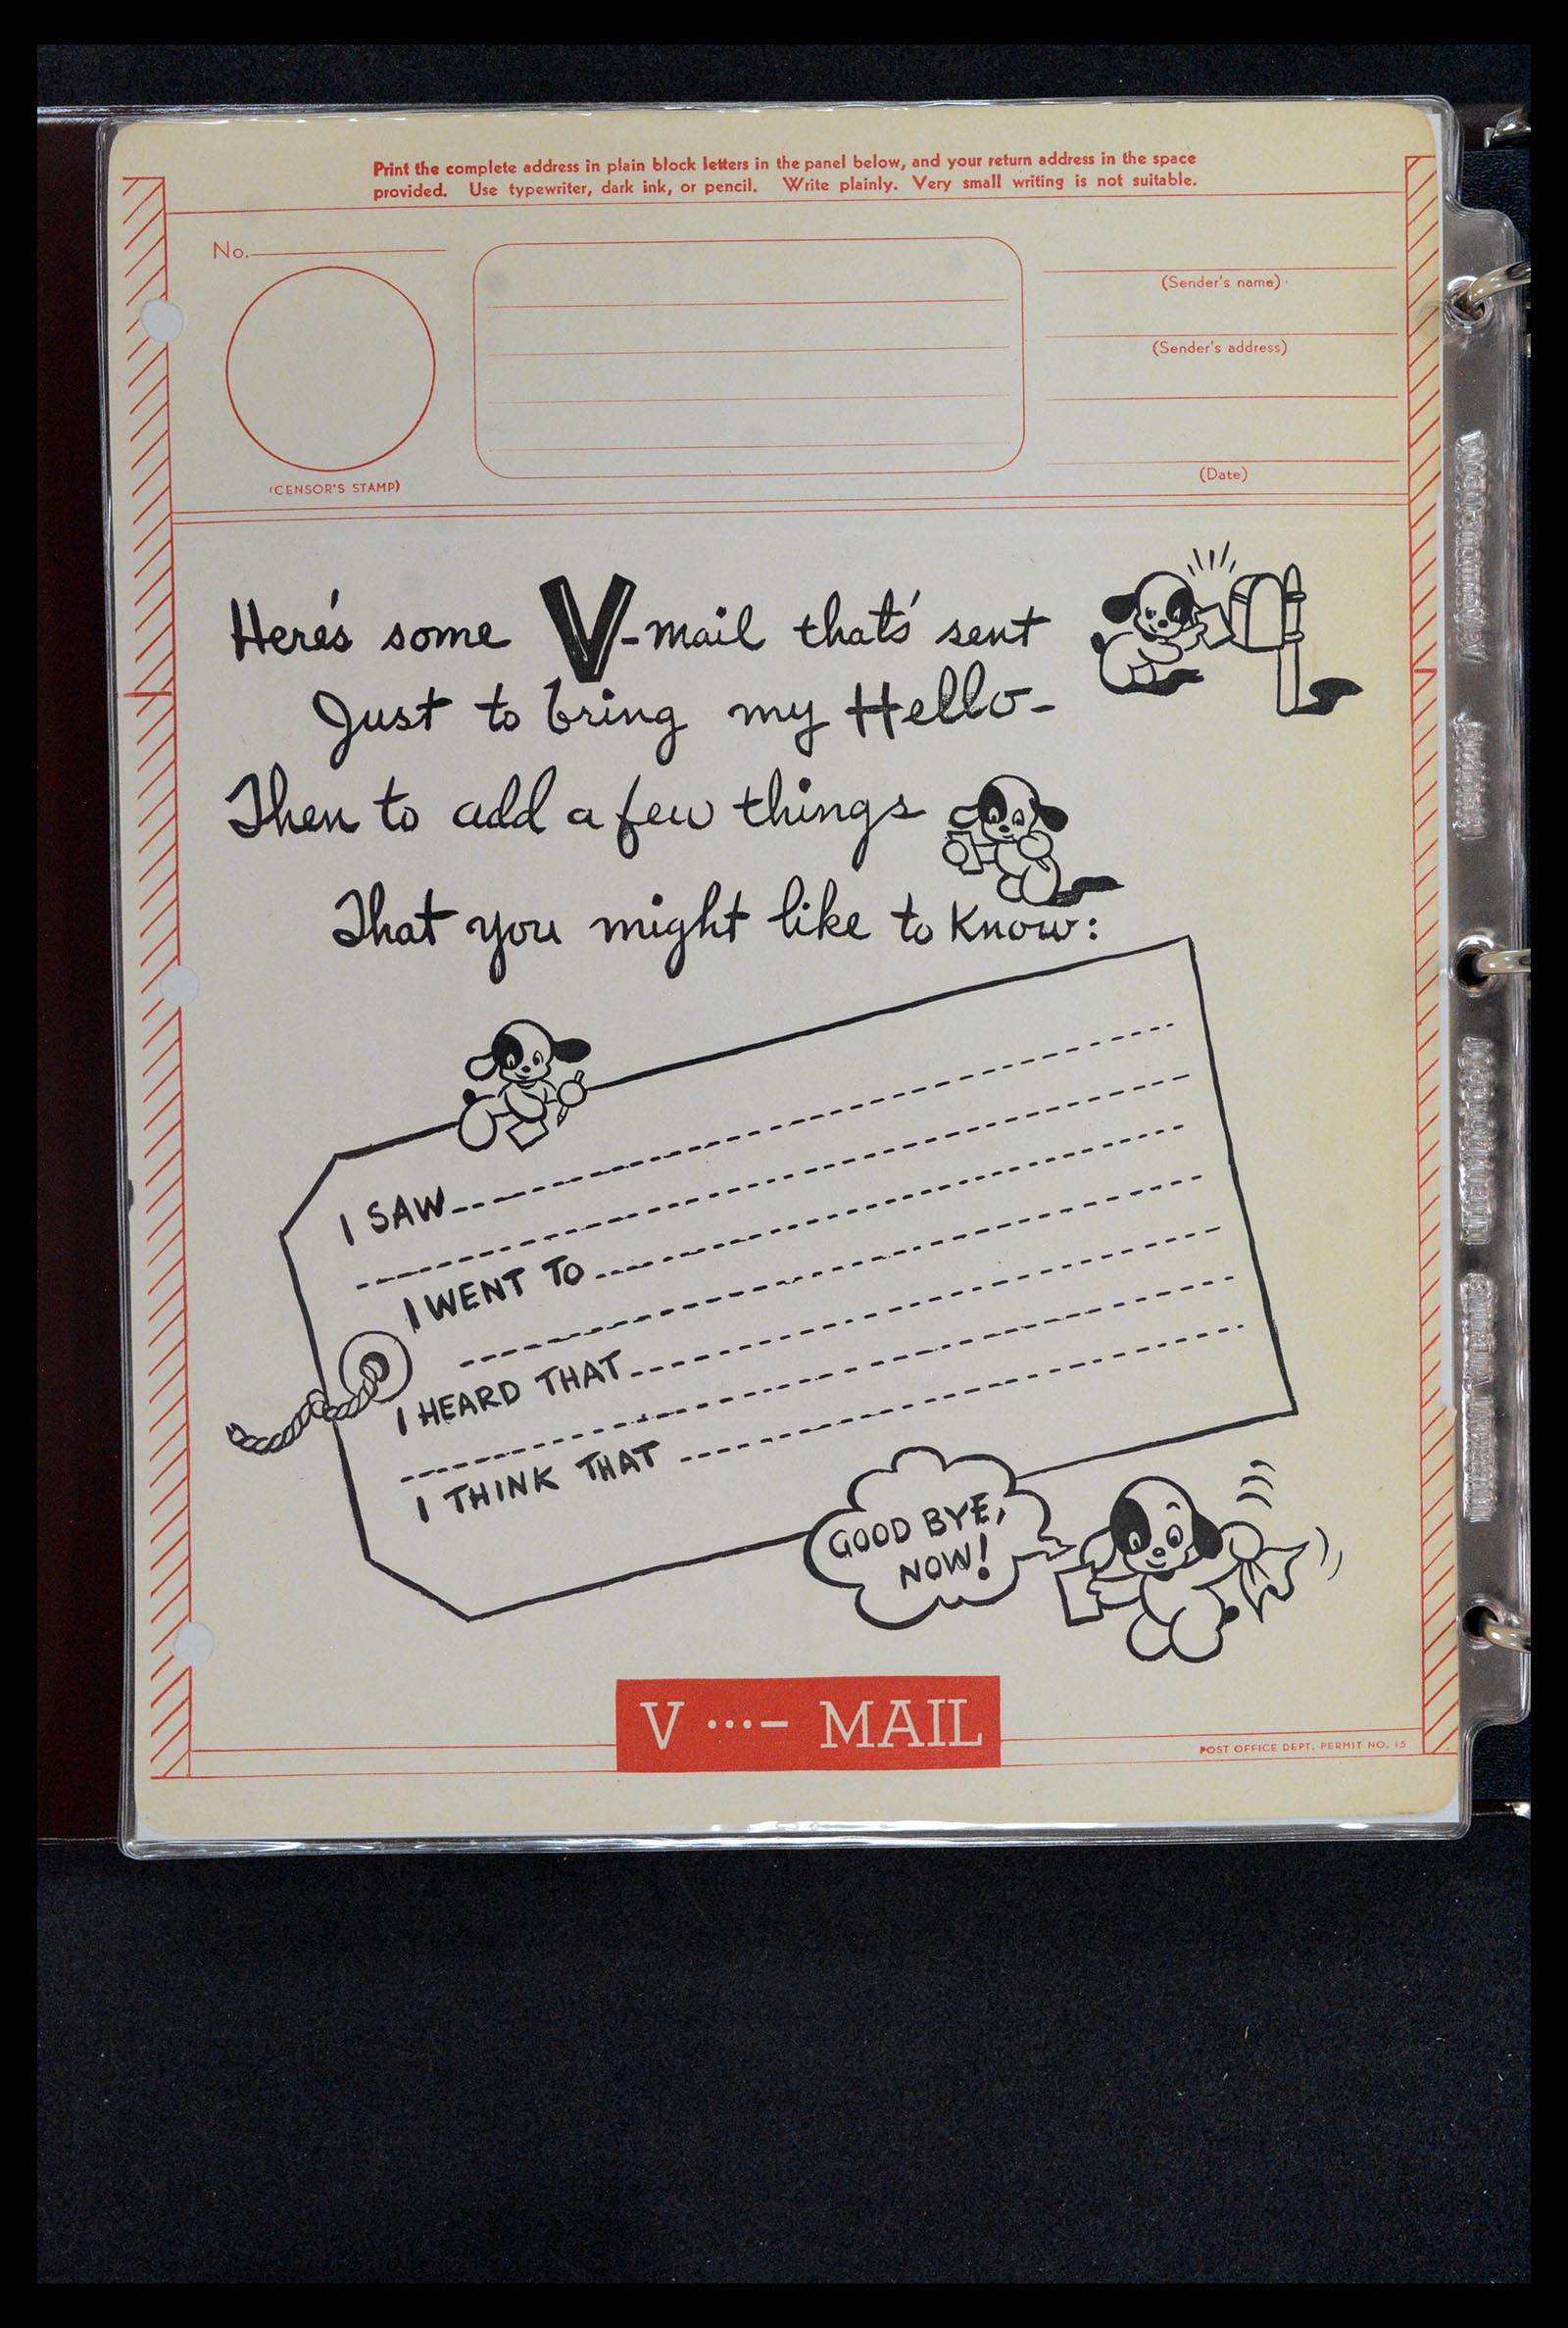 Print the complete address in plain block letters in the panel below, and your return address in the space
provided. Use typewriter, dark ink, or pencil. Write plainly. Very small writing is not suitable.
No.
(CENSOR'S STAMP)
(Sender's name)
(Sender's address)
(Date)
Here's some V-mail that's sent
Just to bring my Hello-
Then to add a few things
That you might like to know:
I SAW
I WENT TO
I HEARD THAT
I THINK THAT
GOOD BYE,
NOW!
V ...- MAIL
POST OFFICE DEPT. PERMIT NO. 15